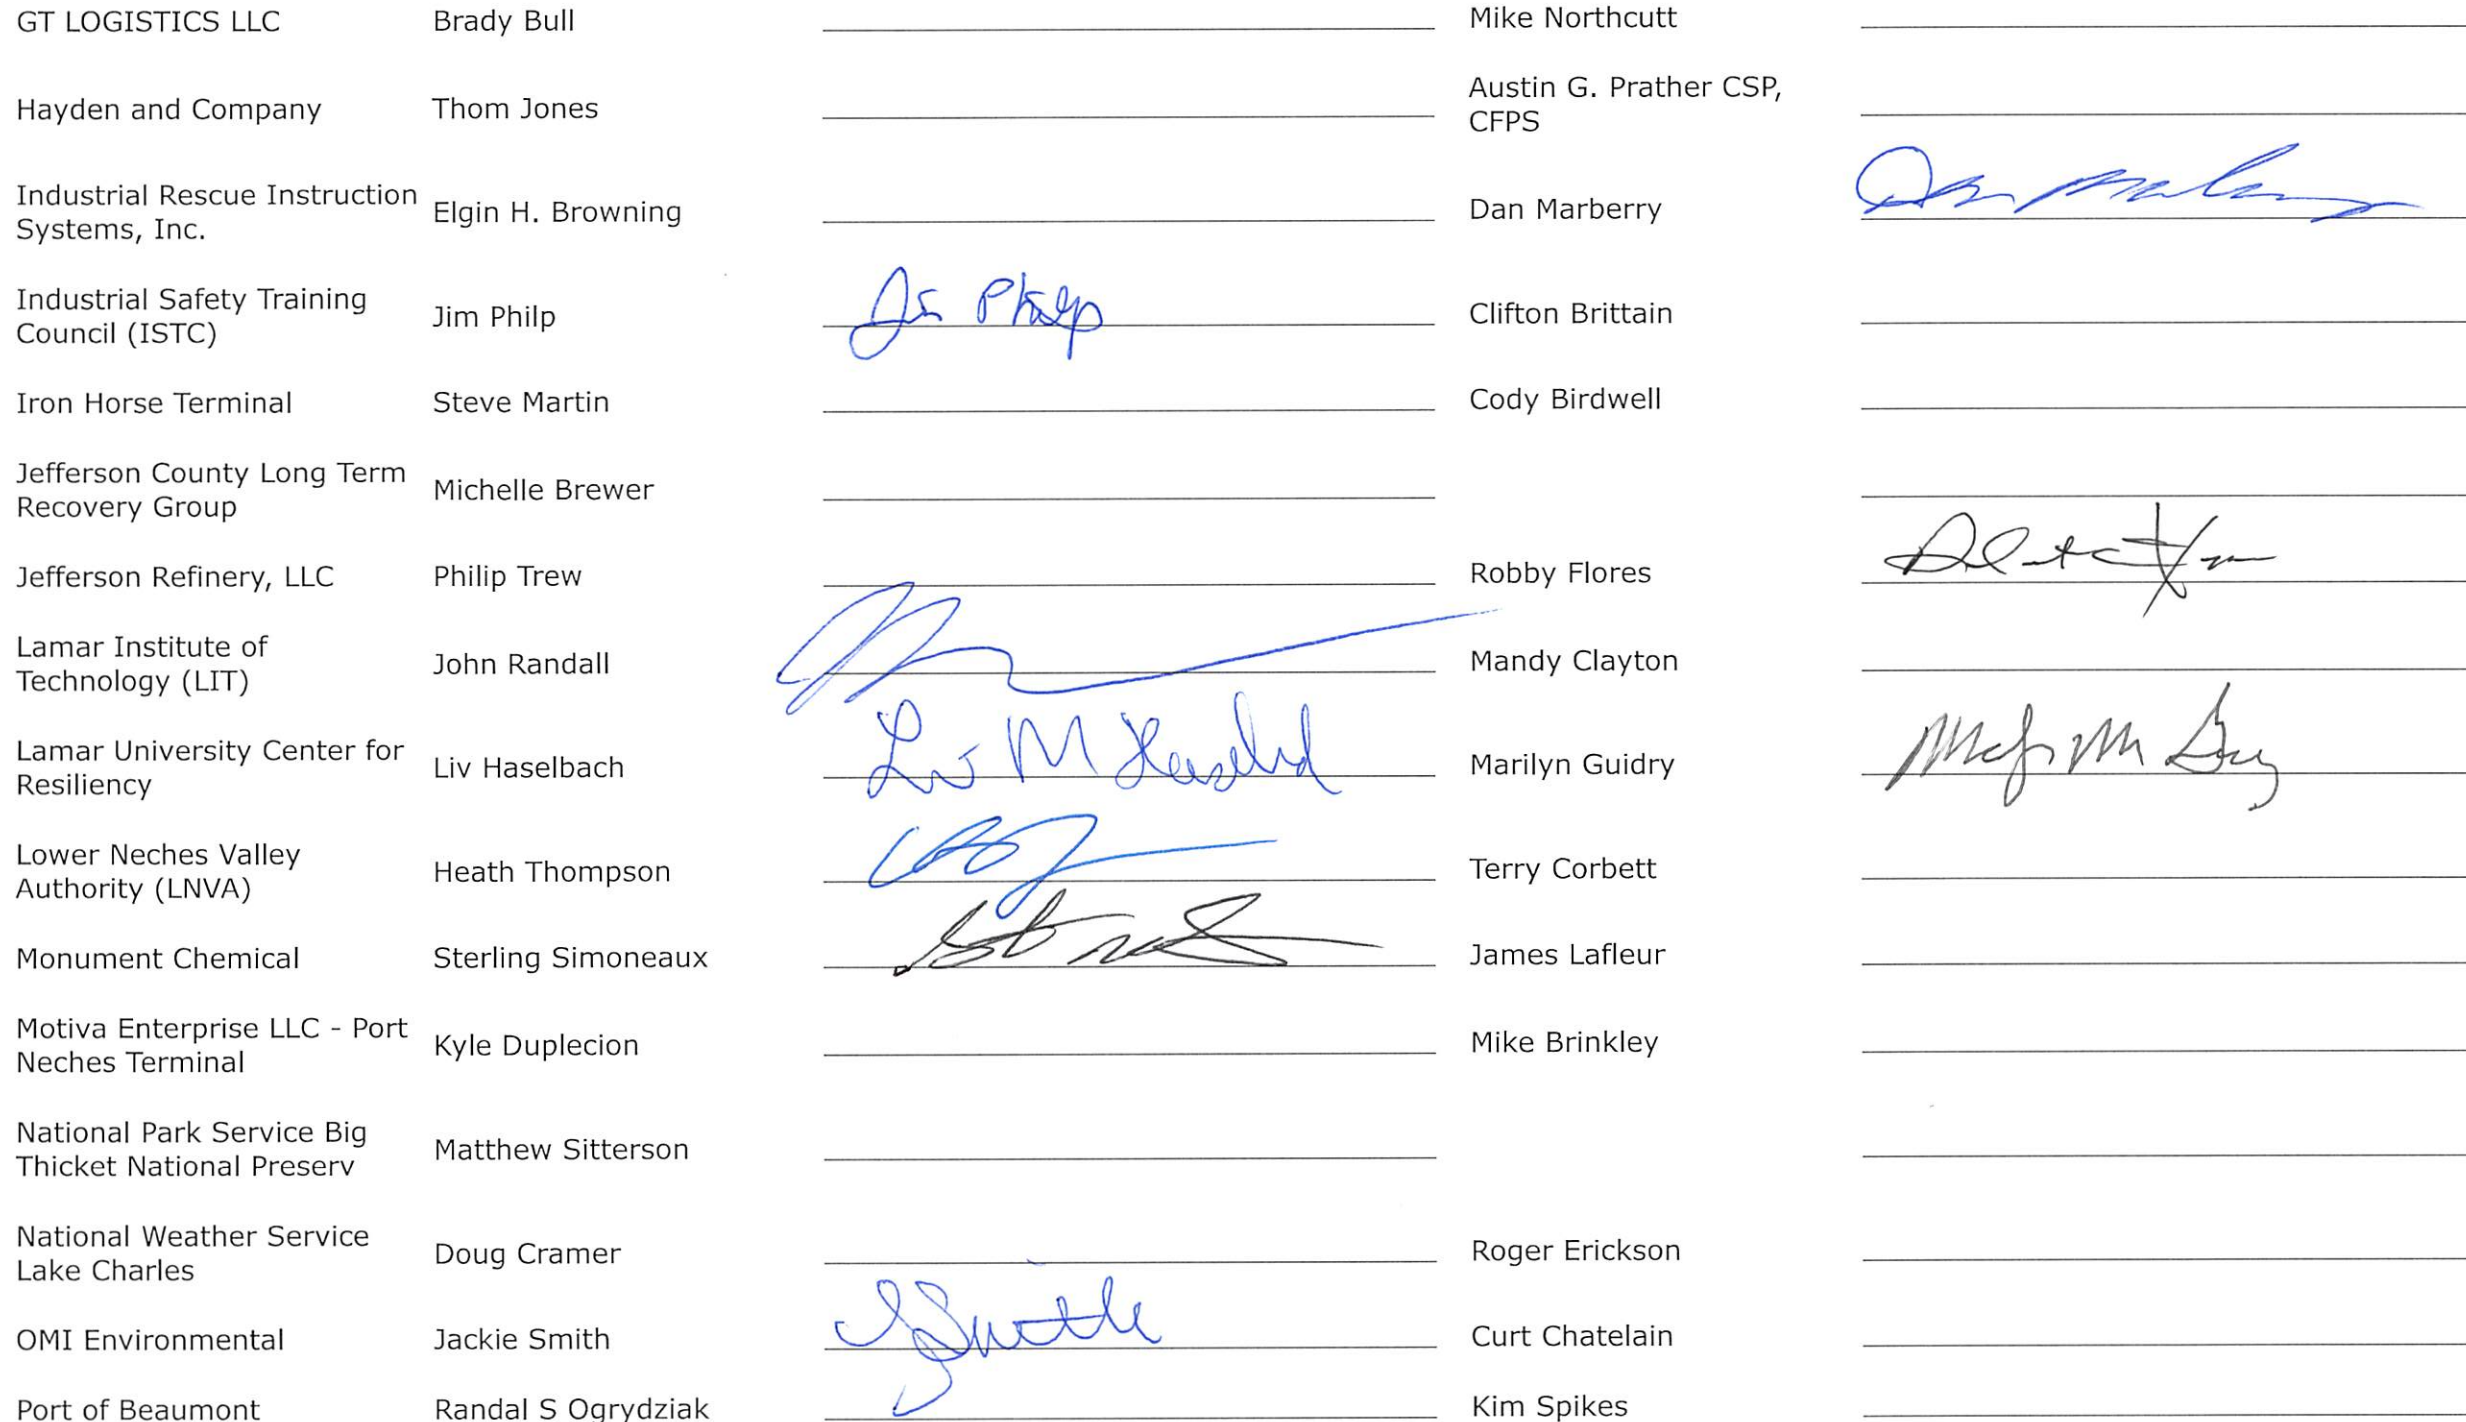 GT LOGISTICS LLC Brady Bull Mike Northcutt
Hayden and Company Thom Jones Austin G. Prather CSP,
CFPS
Industrial Rescue Instruction
Systems, Inc. Elgin H. Browning Dan Marberry
Industrial Safety Training
Council (ISTC) Jim Philp Jim Philp Clifton Brittain
Iron Horse Terminal Steve Martin Cody Birdwell
Jefferson County Long Term
Recovery Group Michelle Brewer
Jefferson Refinery, LLC Philip Trew Robby Flores
Lamar Institute of
Technology (LIT) John Randall Mandy Clayton
Lamar University Center for
Resiliency Liv Haselbach Liv M Haselbach Marilyn Guidry
Lower Neches Valley
Authority (LNVA) Heath Thompson Terry Corbett
Monument Chemical Sterling Simoneaux James Lafleur
Motiva Enterprise LLC - Port
Neches Terminal Kyle Duplecion Mike Brinkley
National Park Service Big
Thicket National Preserv Matthew Sitterson
National Weather Service
Lake Charles Doug Cramer Roger Erickson
OMI Environmental Jackie Smith J Smith Curt Chatelain
Port of Beaumont Randal S Ogrydziak Kim Spikes